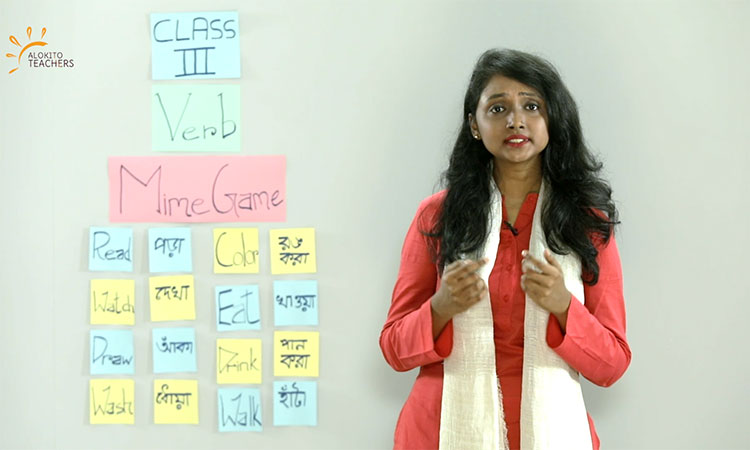 ALOKITO
TEACHERS
CLASS
III
Verb
Mime Game
Read পড়া Color রঙ করা
Watch দেখা Eat খাওয়া
Draw আঁকা Drink পান করা
Wash ধোঁয়া Walk হাঁটা